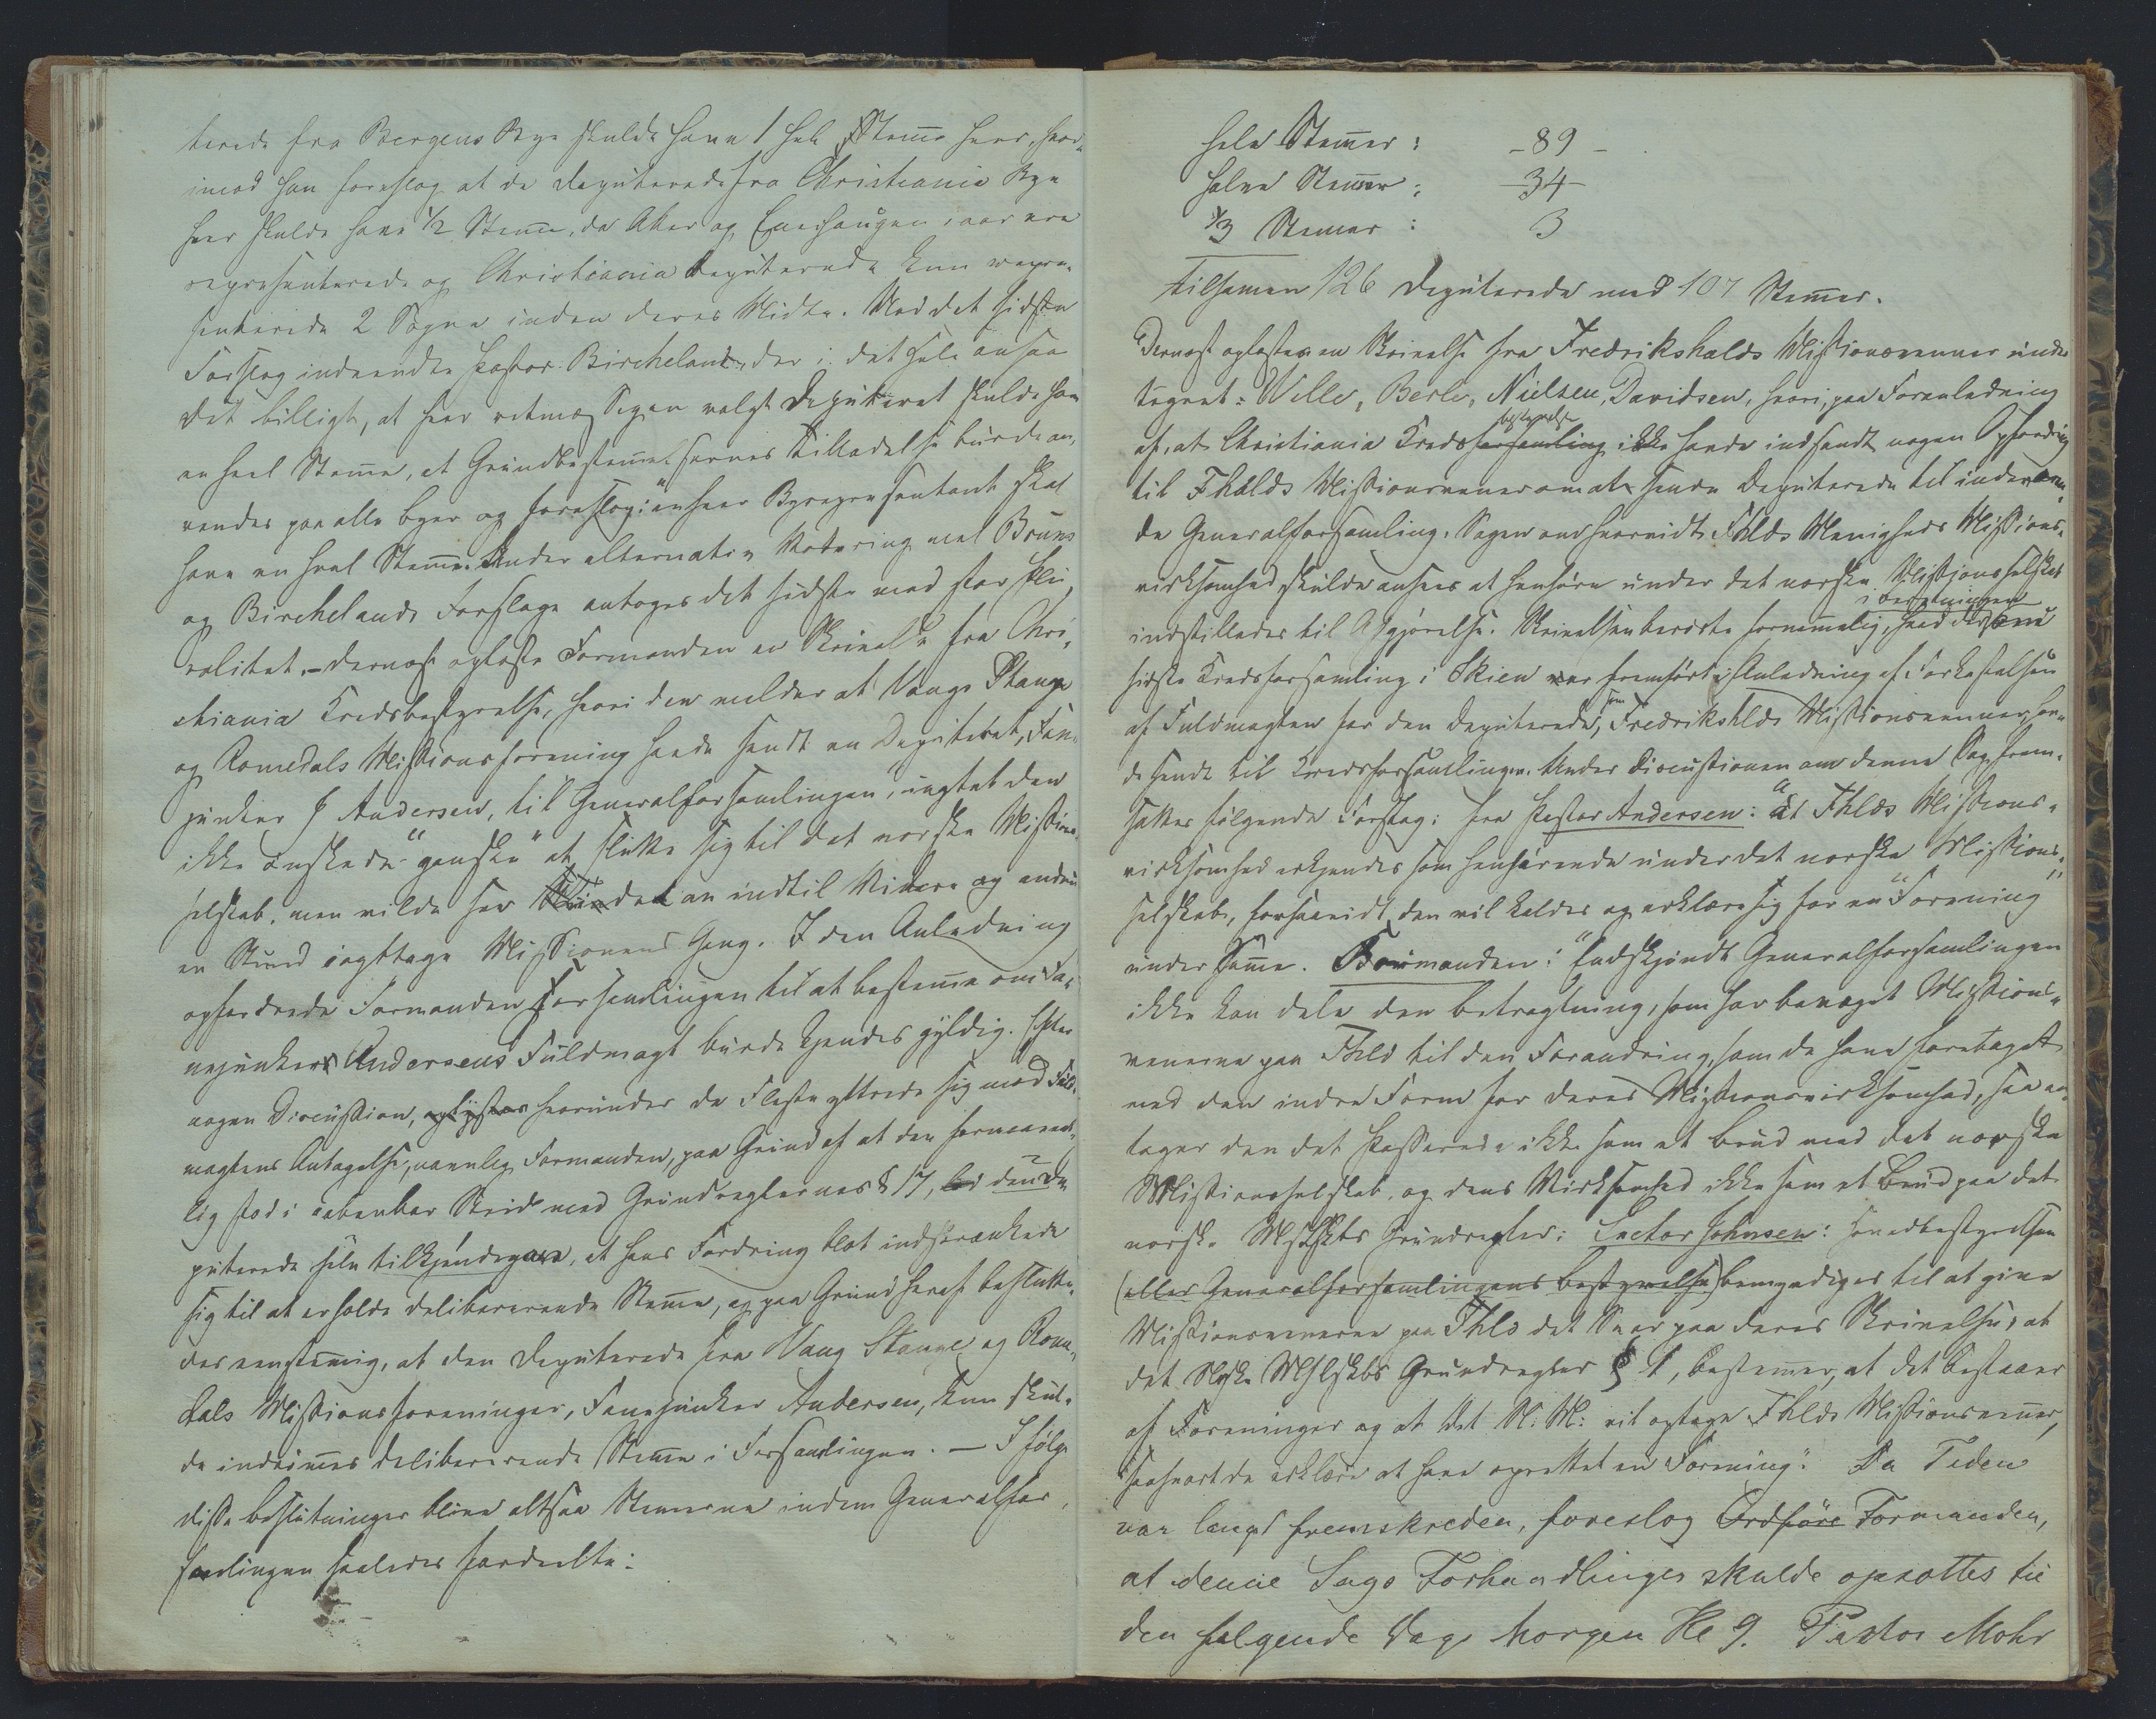 terede fra Bergens Bye skulde have 1 hel Stemme hver, hvor-
imod han foreslog at de deputerede fra Christiania Bye
hver skulde have 1/2 Stemme, da Aker og Enerhaugen i aar ere
repræsenterede og Christiania deputerede kun repræ-
senterede 2 Sogne inden deres Midte. Mod det sidste
Forslag indvendte Pastor Bircheland, der i det Hele ansaa
det billigt, at hver retmæssigen valgt Deputeret skulde have
en heel Stemme, at Grundbestemmelsernes Tilladelse burde an-
vendes paa alle byer og foreslog: "enhver Byrepræsentant skal
have en heel Stemme." Under alternativ Votering mel Bruns
og Birchelands Forslage antoges det sidste med stor Plu-
ralitet. – Dernæst oplæste Formanden en Skrivelse fra Chri-
stiania Kredsbestyrelse, hvori den melder at Vangs Stange
og Romedals Missionsforening havde sendt en Deputeret, Fan-
junker J Andersen, til Generalforsamlingen, uagtet den
ikke ønskede "ganske" at slutte sig til det norske Missions-
selskab, men vilde see det an indtil Videre og endnu
en Stund iagttage Missionens Gang. I den Anledning
opfordrede Formanden Forsamlingen til at bestemme om Fa-
nejunker Andersens Fuldmagt burde kjendes gyldig. Efter
nogen Discussion, hvorunder de Fleste yttrede sig mod Fuld-
magtens Antagelse, navnlig Formanden, paa Grund af at den formeent-
lig stod i aabenbar Strid med Grundreglernes § 17, lod den De-
puterede selv tilkjendegive, at hans Fordring blot indskrænkede
sig til at erholde delibererende Stemme, og paa Grund heraf beslutte-
des eenstemmig, at den Deputerede fra Vang Stange og Rome-
dals Missionsforeninger, Fanejunker Andersen, kun skul-
de indrømmes delibererende Stemme i Forsamlingen. – I følge
disse beslutninger blive altsaa Stemmerne inden Generalfor-
samlingen saaledes fordeelte:
hele Stemmer: – 89 –
halve Stemmer: – 34 –
1/3 Stemmer: 3
tilsammen 126 Deputerede med 107 Stemmer.
Dernæst oplæstes en Skrivelse fra Fredrikshalds Missionsvenner under
tegnet: Wille, Berle, Nielsen, Davidsen, hvori, paa Foranledning
bestyrelse
af, at Christiania Kredsforsamling ikke havde indsendt nogen Opfordring
til Fhalds Missionsvenner om at sende Deputerede til indeværen-
de Generalforsamling. Sagen om hvorvidt Fhlds Menigheds Missions-
virksomhed skulde ansees at henhøre under det norske Missionsselskab
i Beretningen
indstilledes til Afgjørelse. Skrivelsen berørte fornemmelig, hvad der om
sidste Kredsforsamling i Skien var fremført i Anledning af Forkastelsen
som
af Fuldmagten for den Deputerede, Fredrikshlds Missionsvenner hav-
de sendt til Kredsforsamlingen. Under Discussionen om denne Sag frem-
sattes følgende Forslag: fra Pastor Andersen: "at Fhlds Missions-
virksomhed erkjendes som henhørende under det norske Missions-
selskab, forsaavidt den vil kaldes og erklære sig for en "Forening"
under samme. Formanden: "Endskjøndt Generalforsamlingen
ikke kan dele den betragtning, som har bevæget Missions-
vennerne paa Fhld til den Forandring, som de have foretaget
med den indre Form for deres Missionsvirksomhed, saa an-
tager den det Passerede ikke som et brud med det norske
Missionsselskab, og dens Virksomhed ikke som et Brud paa det
norske Mselskbs Grundregler: Lector Johnsen: Hovedbestyrelsen
(eller Generalforsamlingens bestyrelse) bemyndiges til at give
Missionsvennerne paa Fhld det Svar paa deres Skrivelse, at
det Norske Mslskbs Grundregler § 1, bestemmer, at det bestaaer
af Foreninger og at det N: M: vil optage Fhlds Missionsvenner,
saasnart de erklære at have oprettet en Forening." Da Tiden
var langt fremskreden, foreslog Ordføre Formanden,
at denne Sags Forhandlinger skulde opsættes til
den følgende Dags Morgen Kl 9. Pastor Mohr